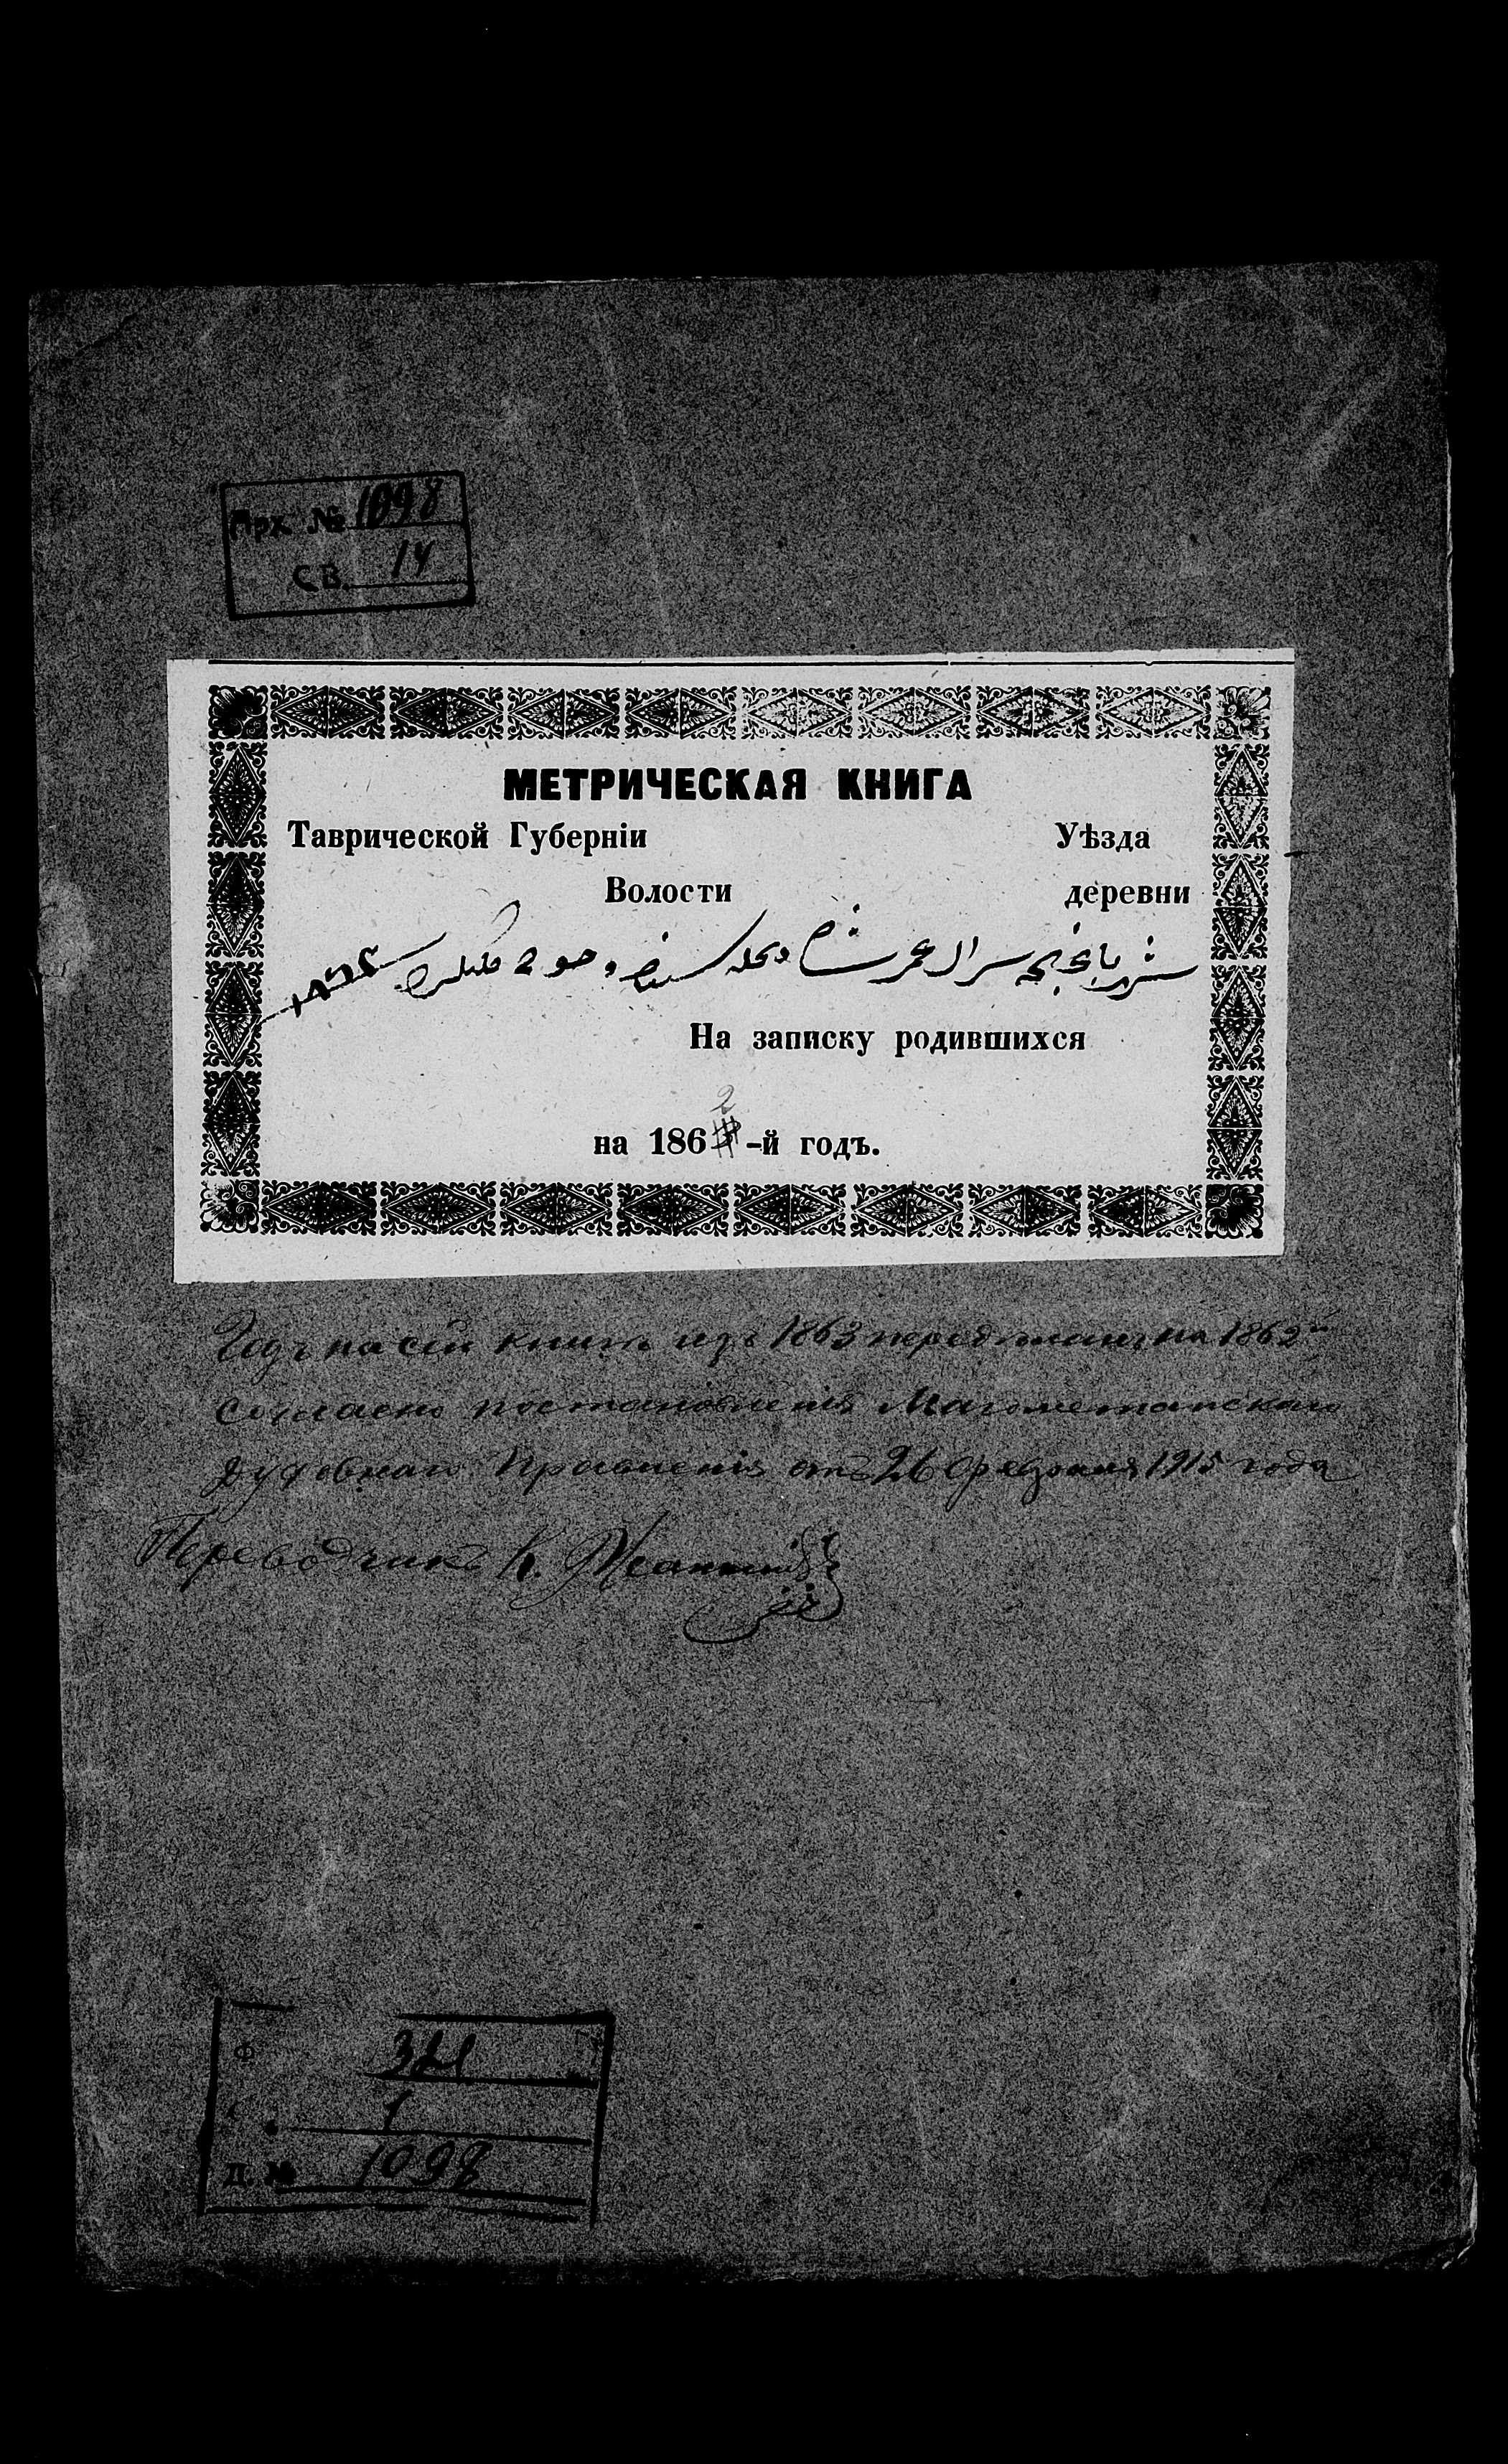 Арх. № 1098
СВ. 14
МЕТРИЧЕСКАЯ КНИГА
Таврической Губерніи Уѣзда
Волости деревни
شهر باغچه سرای
На записку родившихся
2
на 186 -й годъ.
Годъ на сей книгѣ изъ 1863 передѣланъ на 1862й
согласно постановленія Магометанскаго
Духовнаго Правленія отъ 26 февраля 1915 года
Переводчикъ К.
Ф 321
1
Д. № 1098